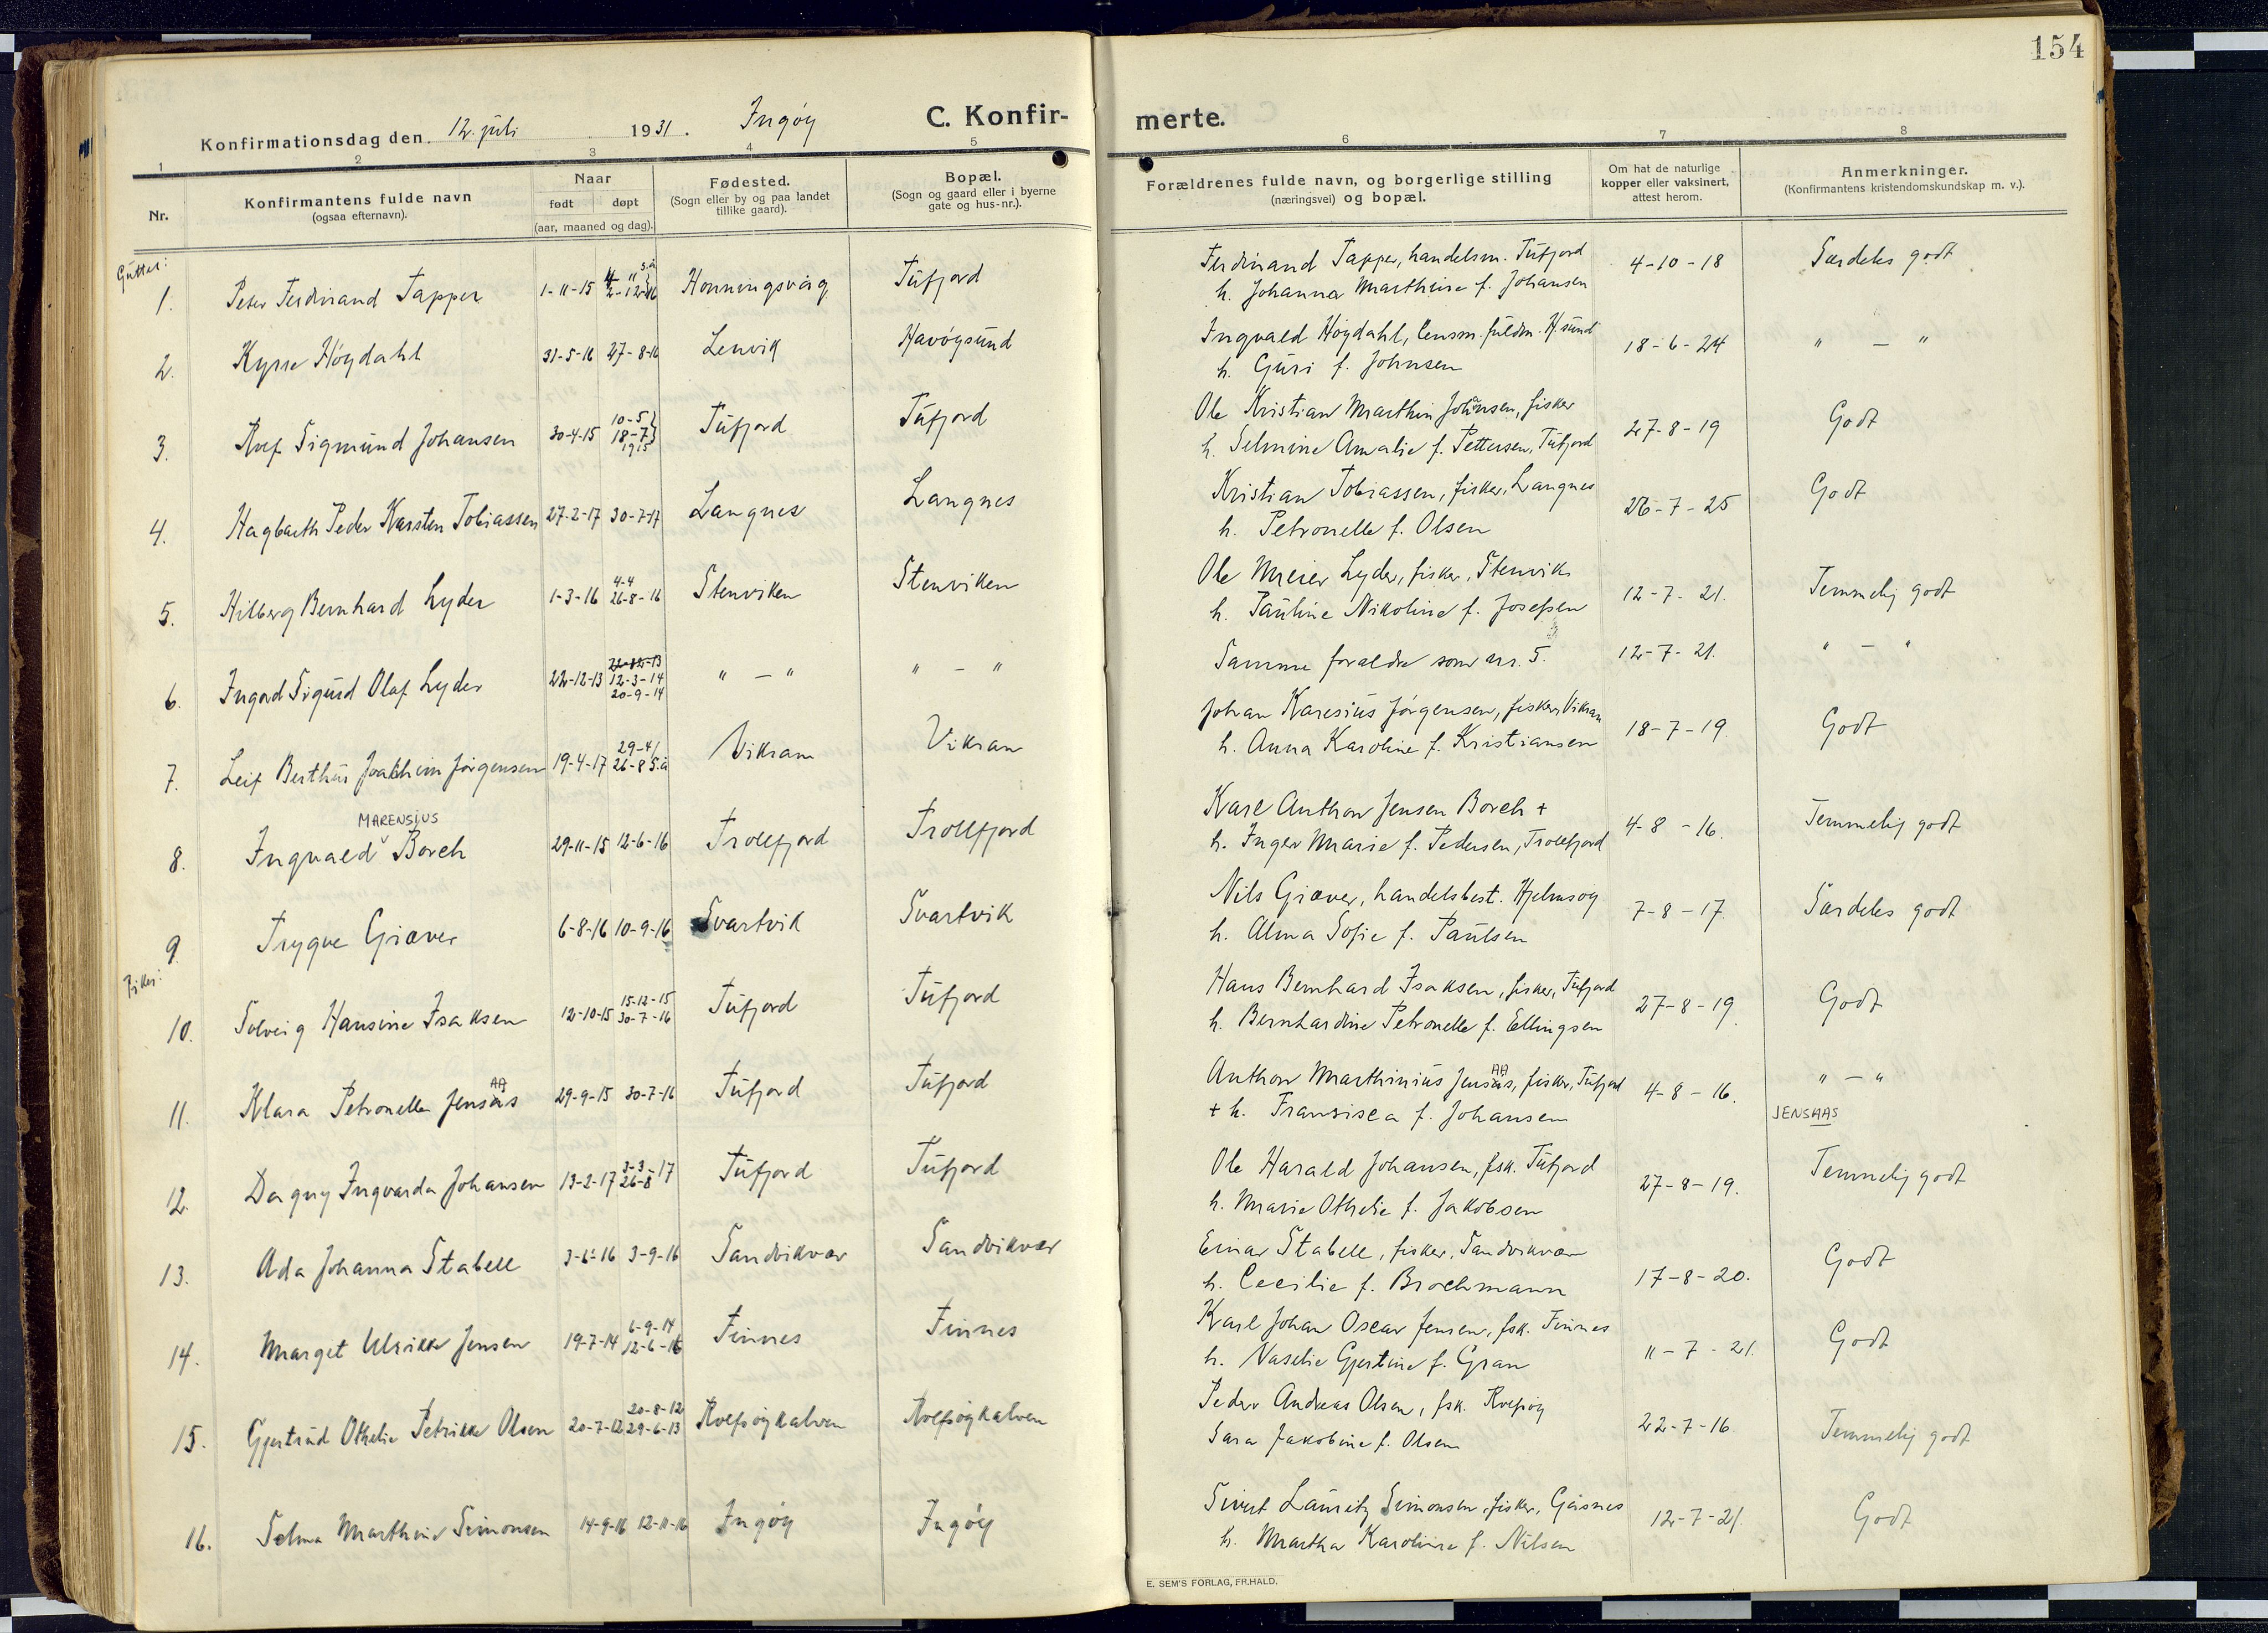 154
Konfirmationsdag den 12. juli 1931. Ingøy
C. Konfir-
merte.
1 2 3 4 5 6 7 8
Nr.
Konfirmantens fulde navn
(ogsaa efternavn).
Naar
født døpt
(aar, maaned og dag).
Fødested.
(Sogn eller by og paa landet
tillike gaard).
Bopæl.
(Sogn og gaard eller i byerne
gate og hus-nr.).
Forældrenes fulde navn, og borgerlige stilling
(næringsvei) og bopæl.
Om hat de naturlige
kopper eller vaksinert,
attest herom.
Anmerkninger.
(Konfirmantens kristendomskundskap m. v.).
Gutter:
1. Peter Ferdinand Tapper 1-11-15 2-12-16 Honningsvåg Tufjord
Ferdinand Tapper, handelsm. Tufjord 4-10-18 Særdeles godt
h. Johanna Marthine f. Johansen
2. Kyrre Høydahl 31-5-16 27-8-16 Lenvik Havøysund
Ingvald Høydahl, lensm. fuldm. H.sund 18-6-24 " — "
h. Guri f. Johnsen
3. Rolf Sigmund Johansen 30-4-15 10-5 18-7 1915 Tufjord Tufjord
Ole Kristian Marthin Johansen, fisker 27-8-19 Godt
h. Selmine Amalie f. Pettersen, Tufjord
4. Hagbarth Peder Karsten Tobiassen 27-2-17 30-7-17 Langnes Langnes
Kristian Tobiassen, fisker, Langnes 26-7-25 Godt
h. Petronelle f. Olsen
5. Hilberg Bernhard Lyder 1-3-16 4-4 26-8-16 Stenviken Stenviken
Ole Meier Lyder, fisker, Stenvik 12-7-21. Temmelig godt
h. Pauline Nikoline f. Josefsen
6. Ingvard Sigurd Olaf Lyder 22-12-13 22-12-13 12-3-14 20-9-14 " — " " — "
Samme foraldre som nr. 5. 12-7-21. " — "
7. Leif Berthus Joakheim Jørgensen 19-4-17 29-4 26-8 s.å Vikran Vikran
Johan Karesius Jørgensen, fisker, Vikran 18-7-19. Godt
h. Anna Karoline f. Kristiansen
MARENSIUS
8. Ingvald Borch 29-11-15 12-6-16 Trollfjord Trollfjord
Karl Anthon Jensen Borch + 4-8-16. Temmelig godt
h. Inger Marie f. Pedersen, Trollfjord
9. Trygve Giæver 6-8-16 10-9-16 Svartvik Svartvik
Nils Giæver, handelsbest. Hjelmsøy 7-8-17. Særdeles godt
h. Alma Sofie f. Paulsen
Piker:
10. Solveig Hansine Isaksen 12-10-15 15-12-15 30-7-16 Tufjord Tufjord
Hans Bernhard Isaksen, fisker, Tufjord 27-8-19. Godt
h. Bernhardine Petronelle f. Ellingsen
AA
11. Klara Petronella Jensås 29-9-15 30-7-16 Tufjord Tufjord
AA
Anthon Marthinius Jensås, fisker, Tufjord 4-8-16. " — "
+ h. Fransisca f. Johansen JENSAAS
12. Dagny Ingvarda Johansen 13-2-17 3-3-17 26-8 Tufjord Tufjord
Ole Harald Johansen, fsk. Tufjord 27-8-19. Temmelig godt
h. Marie Othelie f. Jakobsen
13. Ada Johanna Stabell 3-6-16 3-9-16 Sandvikvær Sandvikvær
Einar Stabell, fisker, Sandvikvær 17-8-20. Godt
h. Cecilie f. Brochmann
14. Marget Ulrikke Jensen 19-7-14 6-9-14 12-6-16 Finnes Finnes
Karl Johan Oscar Jensen, fsk. Finnes 11-7-21. Godt
h. Vaselie Gjertine f. Gran
15. Gjertrud Othelie Petrikke Olsen 20-7-12 20-8-12 29-6-13 Rolfsøykalven Rolfsøykalven
Peder Andreas Olsen, fsk. Rolfsøy 22-7-16. Temmelig godt
Sara Jakobine f. Olsen
16. Selma Marthine Simonsen 14-9-16 12-11-16 Ingøy Ingøy
Sivert Lauritz Simonsen, fisker, Gåsnes 12-7-21. Godt
h. Martha Karoline f. Nilsen
E. SEM'S FORLAG, FR.HALD.